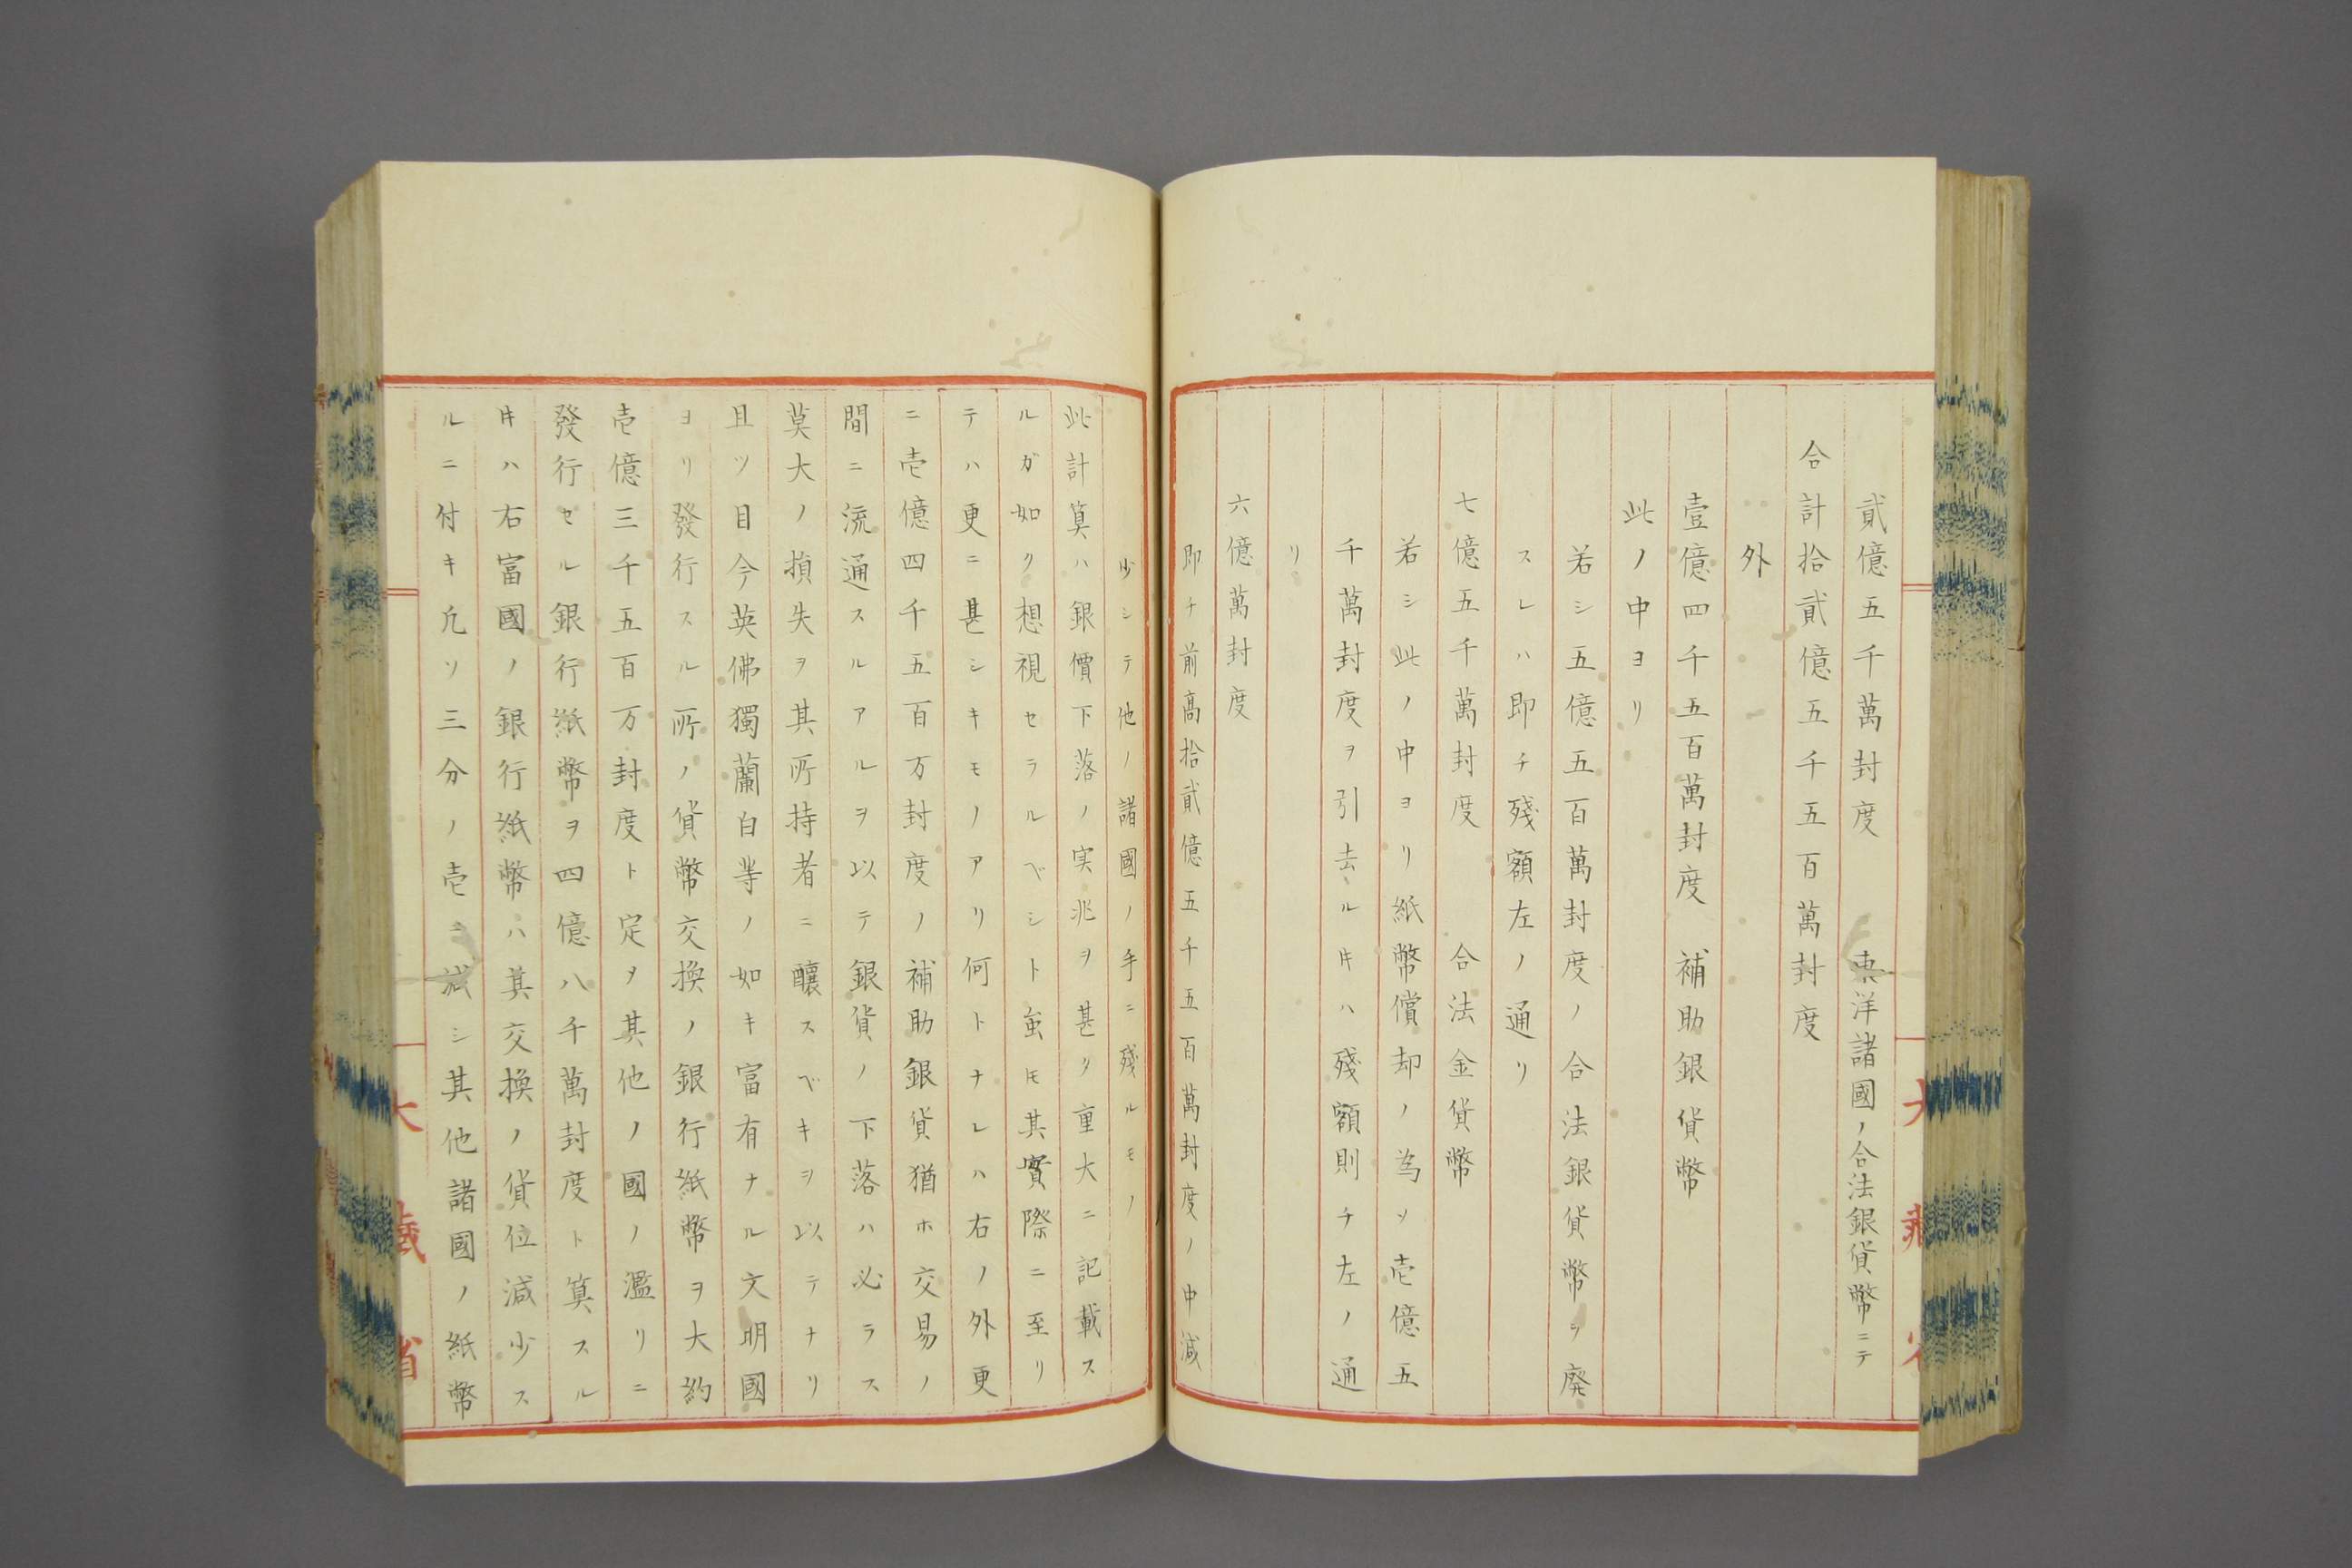 貳億五千萬封度　東洋諸國ノ合法銀貨幣ニテ
合計拾貳億五千五百萬封度
外
壹億四千五百萬封度　補助銀貨幣
此ノ中ヨリ
若シ五億五百萬封度ノ合法銀貨幣ヲ廢
スレハ即チ殘額左ノ通リ
七億五千萬封度　合法金貨幣
若シ此ノ中ヨリ紙幣償却ノ為ソ壱億五
千萬封度ヲ引去ルキハ殘額則チ左ノ通
リ
六億萬封度
即チ前高拾貳億五千五百萬封度ノ中減
少シテ他ノ諸國ノ手ニ殘ルモノ
此計算ハ銀價下落ノ実兆ヲ甚タ重大ニ記載ス
ルガ如ク想視セラルベシト虽モ其實際ニ至リ
テハ更ニ甚シキモノアリ何トナレハ右ノ外更
ニ壱億四千五百万封度ノ補助銀貨猶ホ交易ノ
間ニ流通スルアルヲ以テ銀貨ノ下落ハ必ラス
莫大ノ損失ヲ其所持者ニ釀スベキヲ以テナリ
且ツ目今英佛獨蘭白䓁ノ如キ富有ナル文明國
ヨリ發行スル所ノ貨幣交換ノ銀行紙幣ヲ大約
壱億三千五百万封度ト定メ其他ノ國ノ濫リニ
發行セル銀行紙幣ヲ四億八千萬封度ト算スル
キハ右富國ノ銀行紙幣ハ其交換ノ貨位減少ス
ルニ付キ凢ソ三分ノ壱ニ減シ其他諸國ノ紙幣
大藏省
大藏省